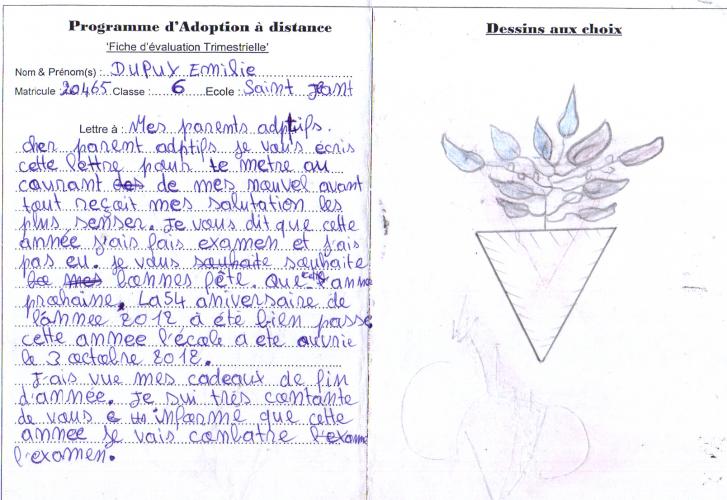 Programme d'Adoption à distance
'Fiche d'évaluation Trimestrielle'
Nom & Prénom(s) : DUPUY Emilie
Matricule : 20465 Classe : 6 Ecole : Saint
Lettre à : Mes parents adptifs.
cher parent adptifs je vous écris
cette lettre pour te metre au
courant des de mes nouvel avant
tout reçait mes salutation les
plus senser. Je vous dit que cette
année j'ais fais examen et j'ais
pas eu. je vous souhaite souhaite
mes bonnes fête. Que
prochaine. La 54 aniversaire de
l'année 2012 à été bien passé
cette annee l'école a ete ouvrie
le 3 octobre 2012.
J'ais vue mes cadeaux de fin
d'année. Je sui très contante
de vous informe que cette
annee je vais conbatre l'exame
l'examen.
Dessins aux choix